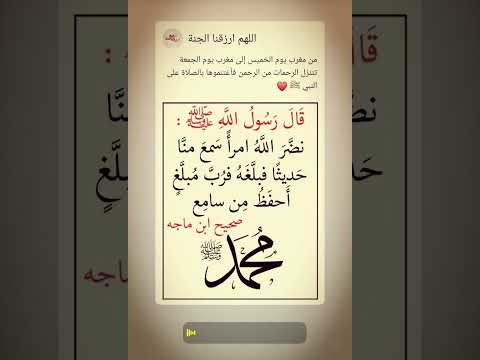 اللهم ارزقنا الجنة
من مغرب يوم الخميس إلى مغرب يوم الجمعة
تتنزل الرحمات من الرحمن فأغتنموها بالصلاة على
النبي ﷺ ❤️
قَالَ رَسُولُ اللَّهِ ﷺ :
نضَّرَ اللَّهُ امرأً سَمِعَ منَّا
حَديثًا فبلَّغَهُ فرُبَّ مُبلَّغٍ
أَحفَظُ مِن سامِعٍ
صحيح ابن ماجه
مُحَمَّد ﷺ